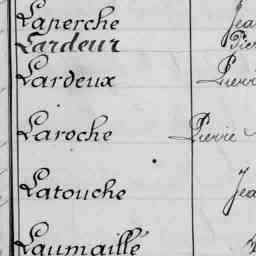 Laperche Jea
Lardeur Pier
Lardeux Pierr
Laroche Pierre
Latouche Jea
Laumaillé